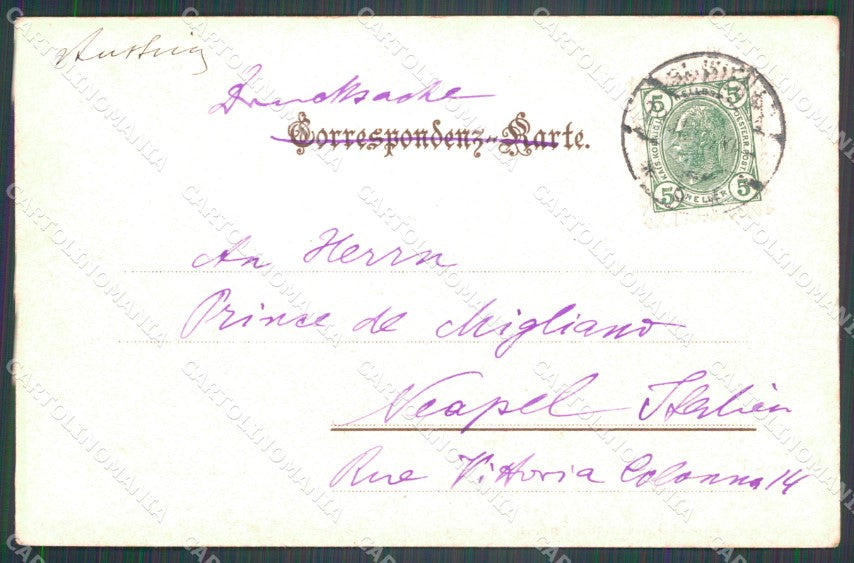 Austria
Drucksache
Correspondenz-Karte.
5 HELLER 5
5 HELLER 5
An Herrn
Prince de Migliano
Neapel Italien
Rue Vittoria Colonna 14
CARTOLINOMANIA